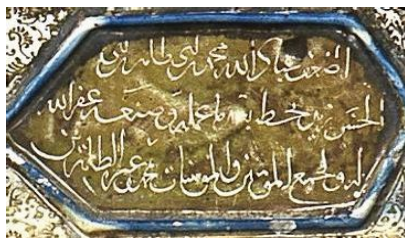 اضعف عباد الله محمد بن ابى طاهر بن
الحسن زين بخطه بعد ما عمله و صنعه غفر الله
له و لجميع المؤمنين و المؤمنات بمحمد و عترته الطاهرين